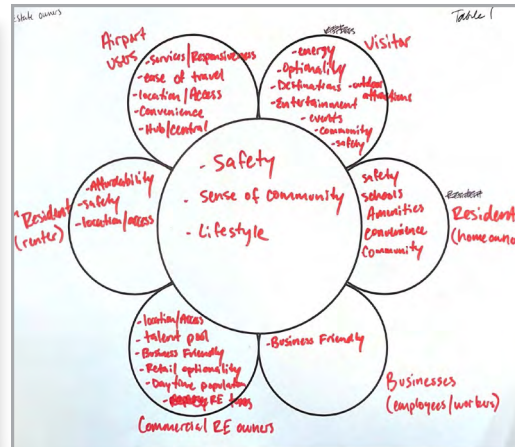 state owners
Table 1
Airport
uses
- services/Responsiveness
- ease of travel
- location/Access
- Convenience
- Hub/central
Visitor
- energy
- Optionality
- Destinations
- outdoor
attractions
- Entertainment
- events
- community
- safety
- Safety
- sense of community
- Lifestyle
Resident
(renter)
- Affordability
- safety
- location/access
Resident
(homeowne
safety
schools
Amenities
convenience
Community
- location/Access
- talent pool
- Business Friendly
- Retail optionality
- Daytime population
RE
Commercial RE owners
- Business Friendly
Businesses
(employees/workers)